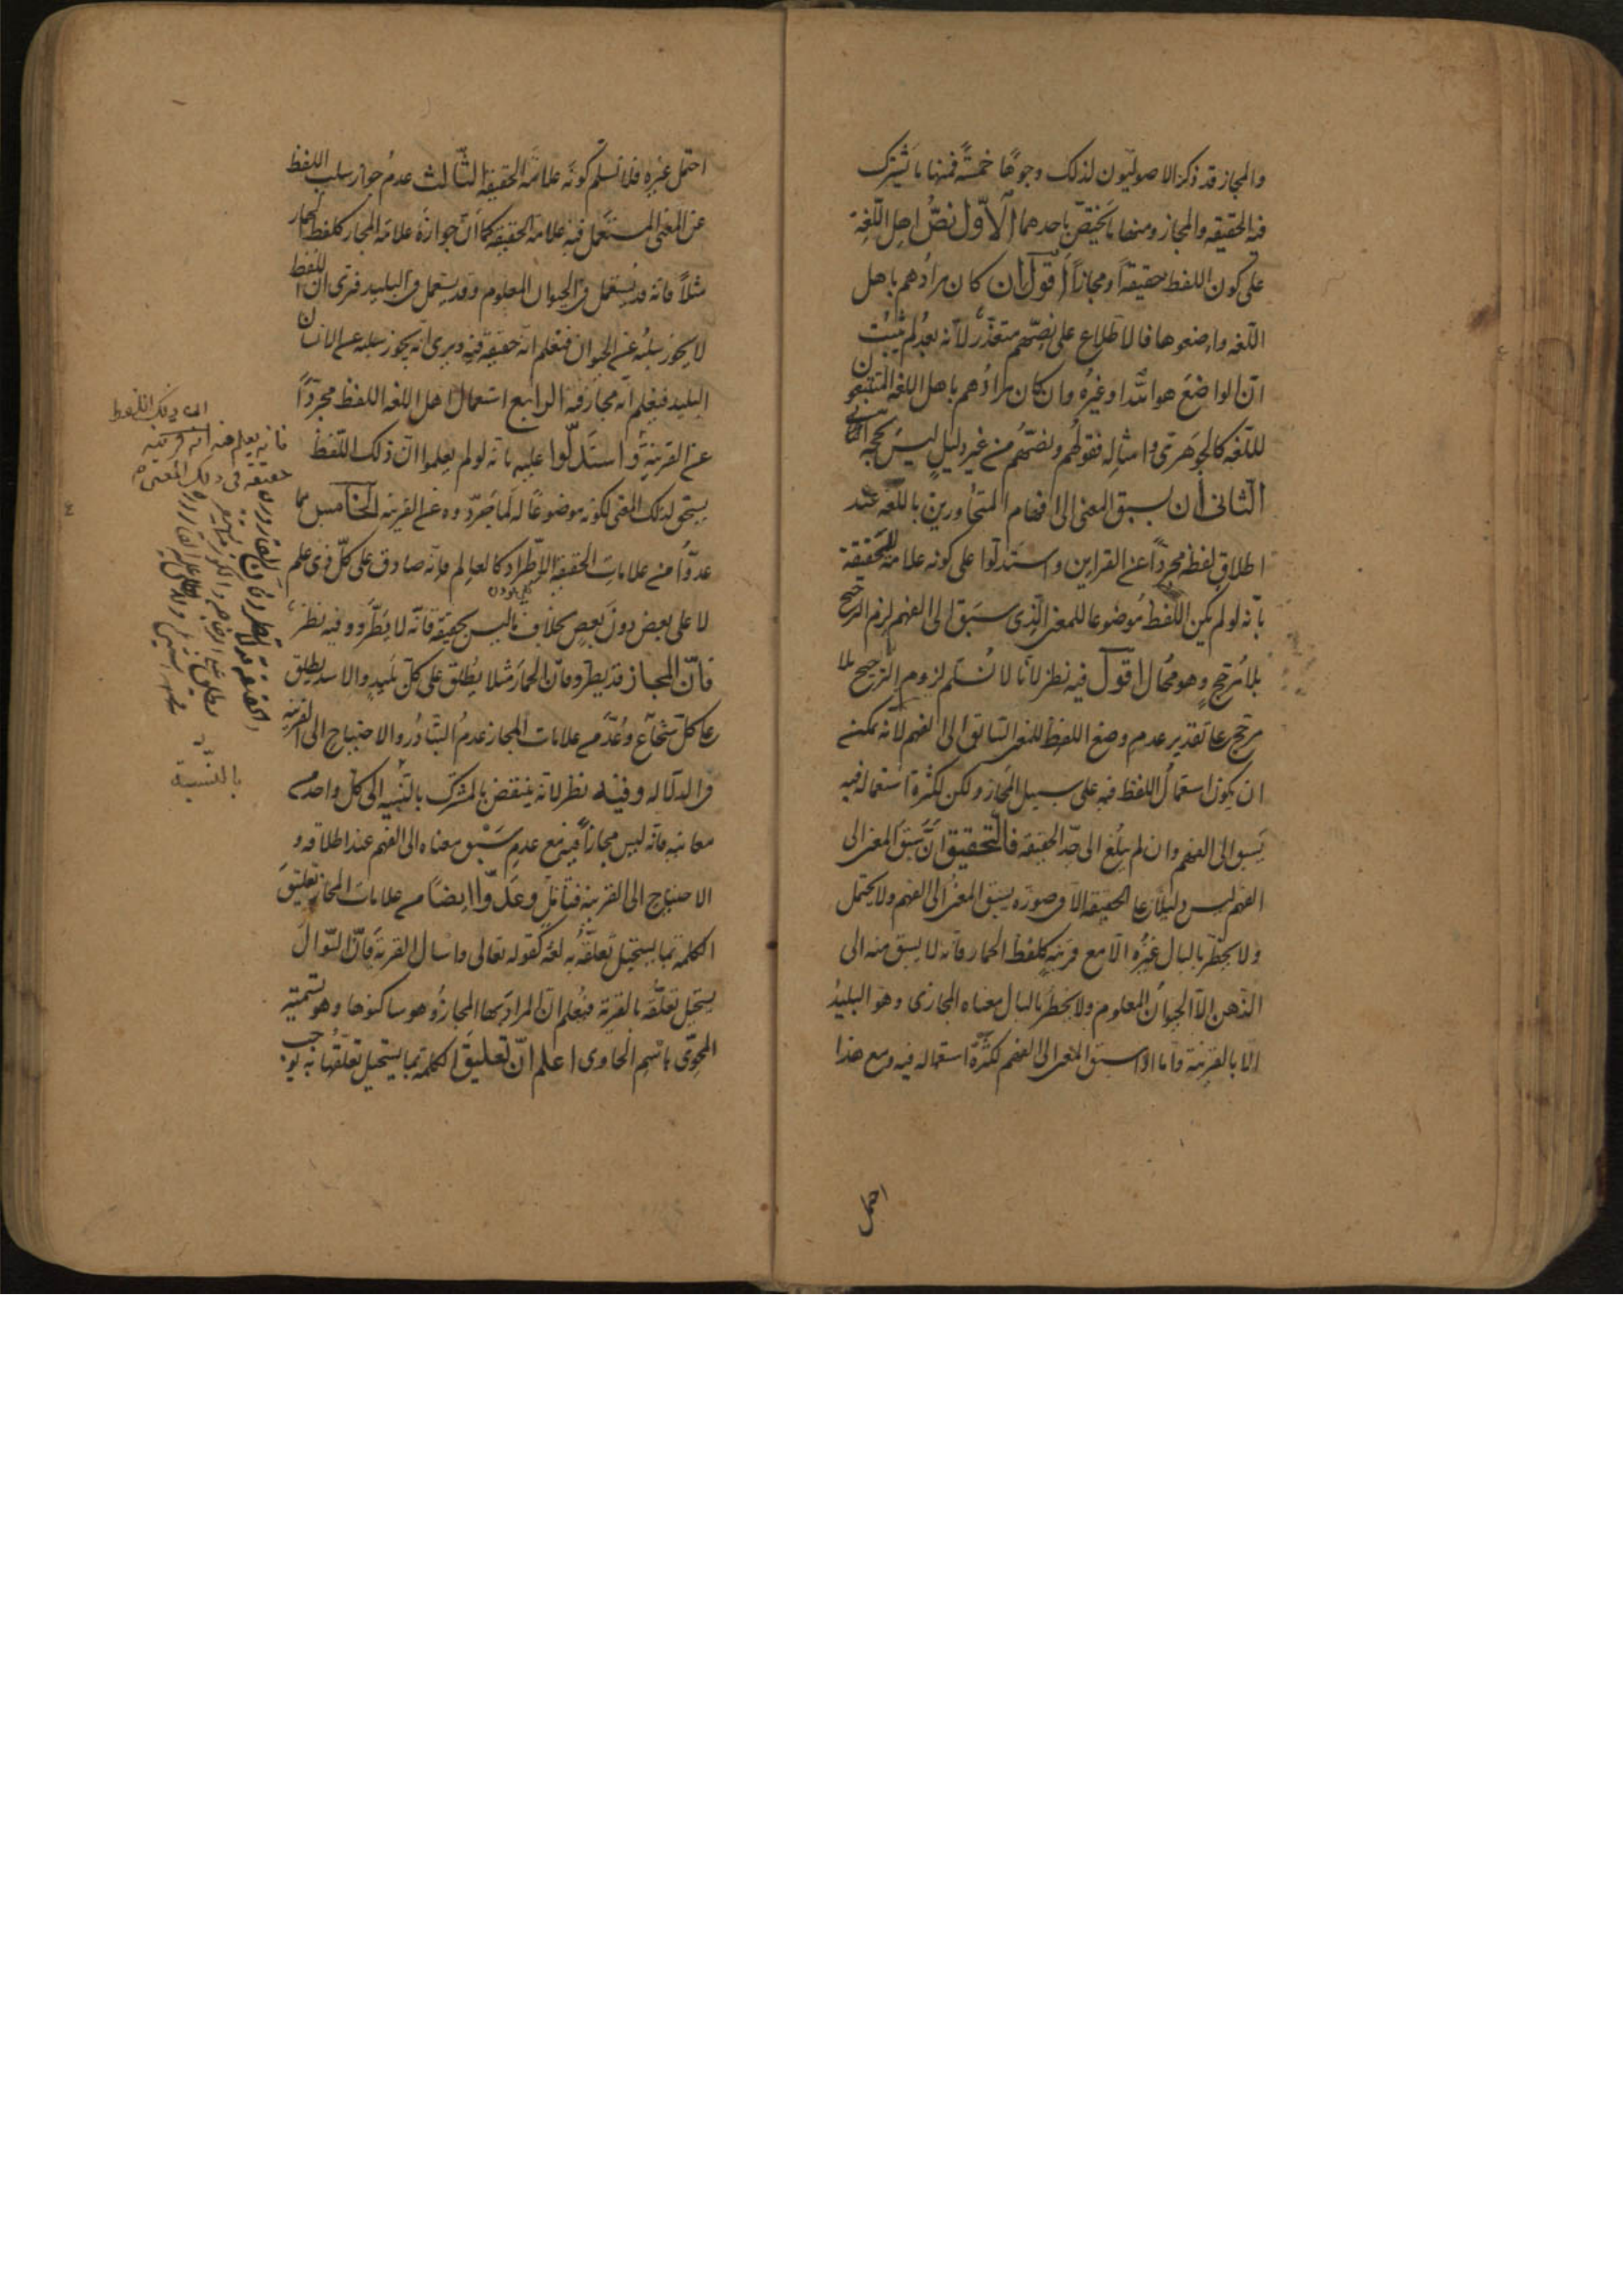 والمجاز قد ذكر الاصوليون لذلك وجوهًا خمسةً فمنها ما يشترك
فيه الحقيقه والمجاز ومنها ما يختصّ باحدهما الاوّل نصُّ اهل اللّغة
على كون اللفظ حقيقةً او مجازاً اقول ان كان مرادُهم باهل
اللّغه واضعوها فالاطّلاع على نصّهم متعذّر لانّه بعدُ لم يثبت
انّ الواضع هو اللّه او غيرُه وان كان مرادُهم باهل اللغه المتتبعون
للّغه كالجوهرىّ وامثاله فقولُهم ونصّهُم من غير دليل ليسَ بحجّه
الثانى ان يسبق المعنى الى افهام المتحاورين باللّغه عند
اطلاق لفظه مجردّاً عن القراين واستدلّوا على كونه علامةً للحقيقة
بانّه لو لم يكن اللّفظ موضوعا للمعنى الّذى سبق الى الفهم لزم الترجيح
بلا مُرجّح وهو محُال اقول فيه نظر لانّا لا نُسلّم لزوم الترجيح بلا
مرجّح على تقدير عدم وضع اللفظ للمعنى السّابق الى الفهم لانّه يمكن
ان يكون استعمالُ اللفظ فيه على سبيل المجاز ولكن لكثرة استعماله فيه
يسبق الى الفهم وان لم يبلغ الى حدّ الحقيقه فالتّحقيق انّ سبق المعنى الى
الفهم ليس دليلاً على الحقيقه الّا فى صورة يسبق المعنى الى الفهم ولا يحتمل
ولا يخطر بالبال غيرُه الّا مع قرينةٍ كلفظ الحمار فانّه لا يسبق منه الى
الذّهن الّا الحيوانُ المعلوم ولا يخطر بالبال معناه المجازى وهو البليدُ
الّا بالقرينة وامّا اذا سبق المعنى الى الفهم لكثرة استعماله فيه ومع هذا
احتمل
احتمل غيره فلا نسلّم كونَه علامةَ الحقيقة الثّالث عدمُ جواز سلب اللفظ
عن المعنى المستعمل فيه علامة الحقيقة كما انّ جوازَه علامة المجاز كلفظ الحمار
مثلاً فانه قد يستعمل فى الحيوان المعلوم وقد يستعمل فى البليد فترى انّ اللفظ
لا يجوز سلبُه عن الحيوان فتعلم انّه حقيقة فيه ويرى انّه يجوز سلبه عن الانسان
البليد فيعلم انّه مجاز فيه الرابع استعمال اهل اللغه اللفظ مجرّداً
عن القرينة واستدلّوا عليه بانّه لو لم يعلموا انّ ذلك اللّفظ
يستحق لذلك المعنى لكونه موضوعًا له لَما جرّدوه عن القرينه الخامس مما
عدّوا من علامات الحقيقة الاطّراد كالعالم فانّه صادق على كلّ ذى علم
لا على بعض دون بعضٍ بخلاف ما ليس بحقيقة فانّه لا يطّرد وفيه نظر
فانّ المجاز قد يطّرد فانّ الحمار مثلا يُطلق على كلّ بليدٍ والاسد يطلق
على كلّ شجاع وعُدّ من علامات المجاز عدمُ التبادُر والاحتياج الى القرينه
فى الدلاله وفيه نظر لانّه ينتقض بالمشترك بالنّسبه الى كلّ واحد من
معانيه فانّه ليس مجازاً فيه مع عدم سَبْق معناه الى الفهم عند اطلاقه و
الاحتياج الى القرينه فتأمّل وعدّوا ايضًا من علامات المجاز تعليقَ
الكلمة بما يستحيل تعلّقُه به لغة كقوله تعالى واسأل القرية فانّ السّوال
يستحيل تعلّقه بالقرية فيُعلم انّ المراد بها المجازُ وهو ساكنوها وهو تسمية
المحوّى باسم الحاوى اعلم انّ تعليق الكلمة بما يستحيل تعلّقها به يوجب
اى ذلك اللفظ
فانه يعلم منه انه
حقيقة فى ذلك المعنى
الحقيقة قد لا تطرد فان القارورة
بالنّسبة